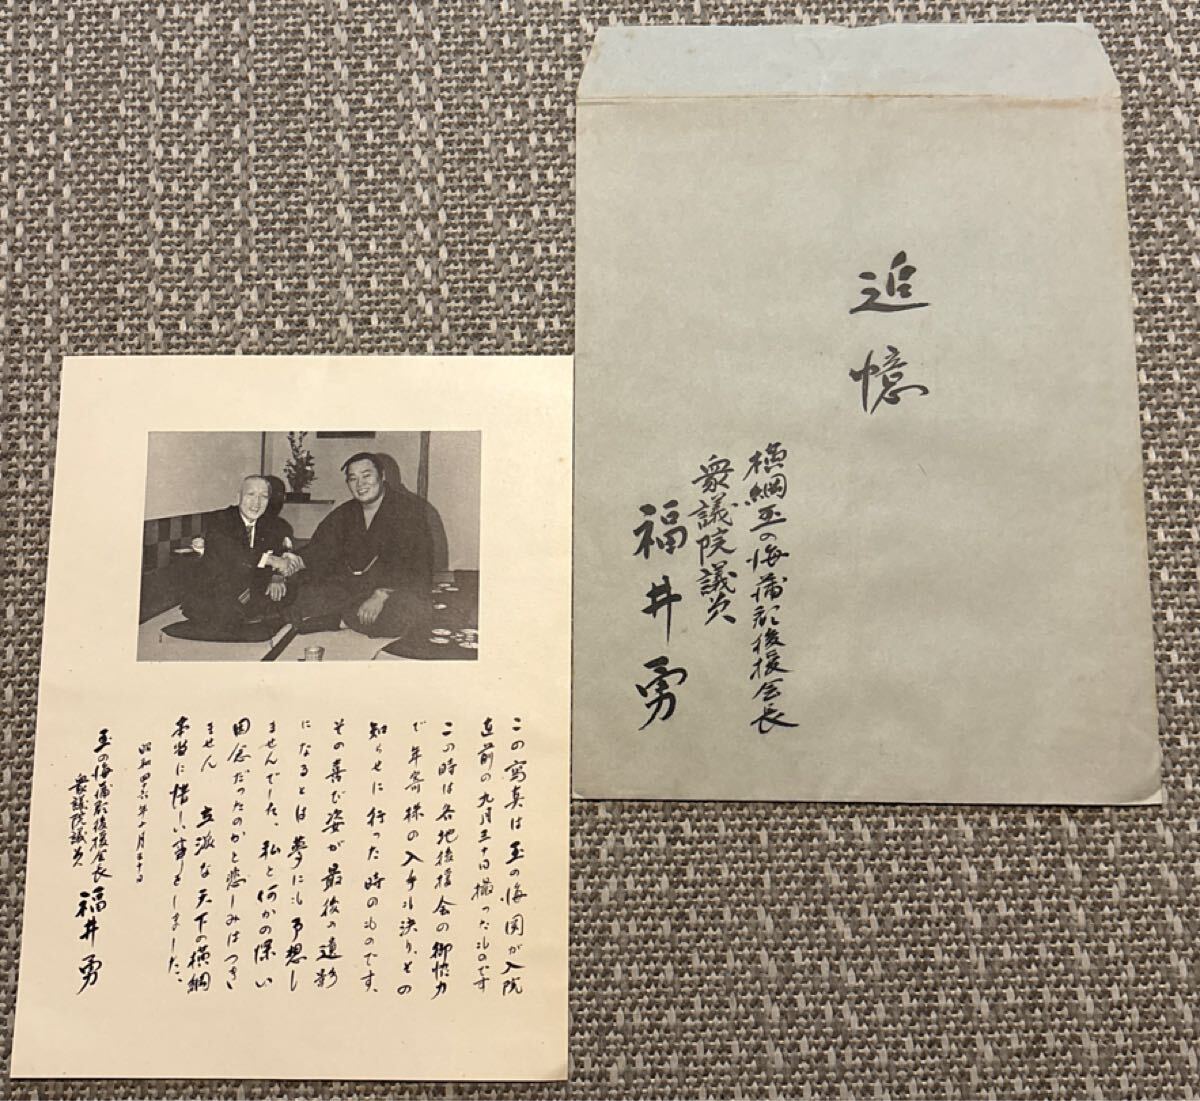 追憶
横綱玉の海蒲郡後援会長
衆議院議員
福井勇
この寫真は玉の海関が入院
直前の九月三十日撮ったものです
この時は各地後援会の御協力
で年寄株の入手も決り、その
知らせに行った時のものです、
その喜ぶ姿が最後の遺影
になるとは夢にも予想し
ませんでした、私と何かの深い
因念だったのかと悲しみはつき
ません 立派な天下の横綱
本当に惜しい事をしました、
昭和四十六年 月三十日
玉の海蒲郡後援会長
衆議院議員
福井勇